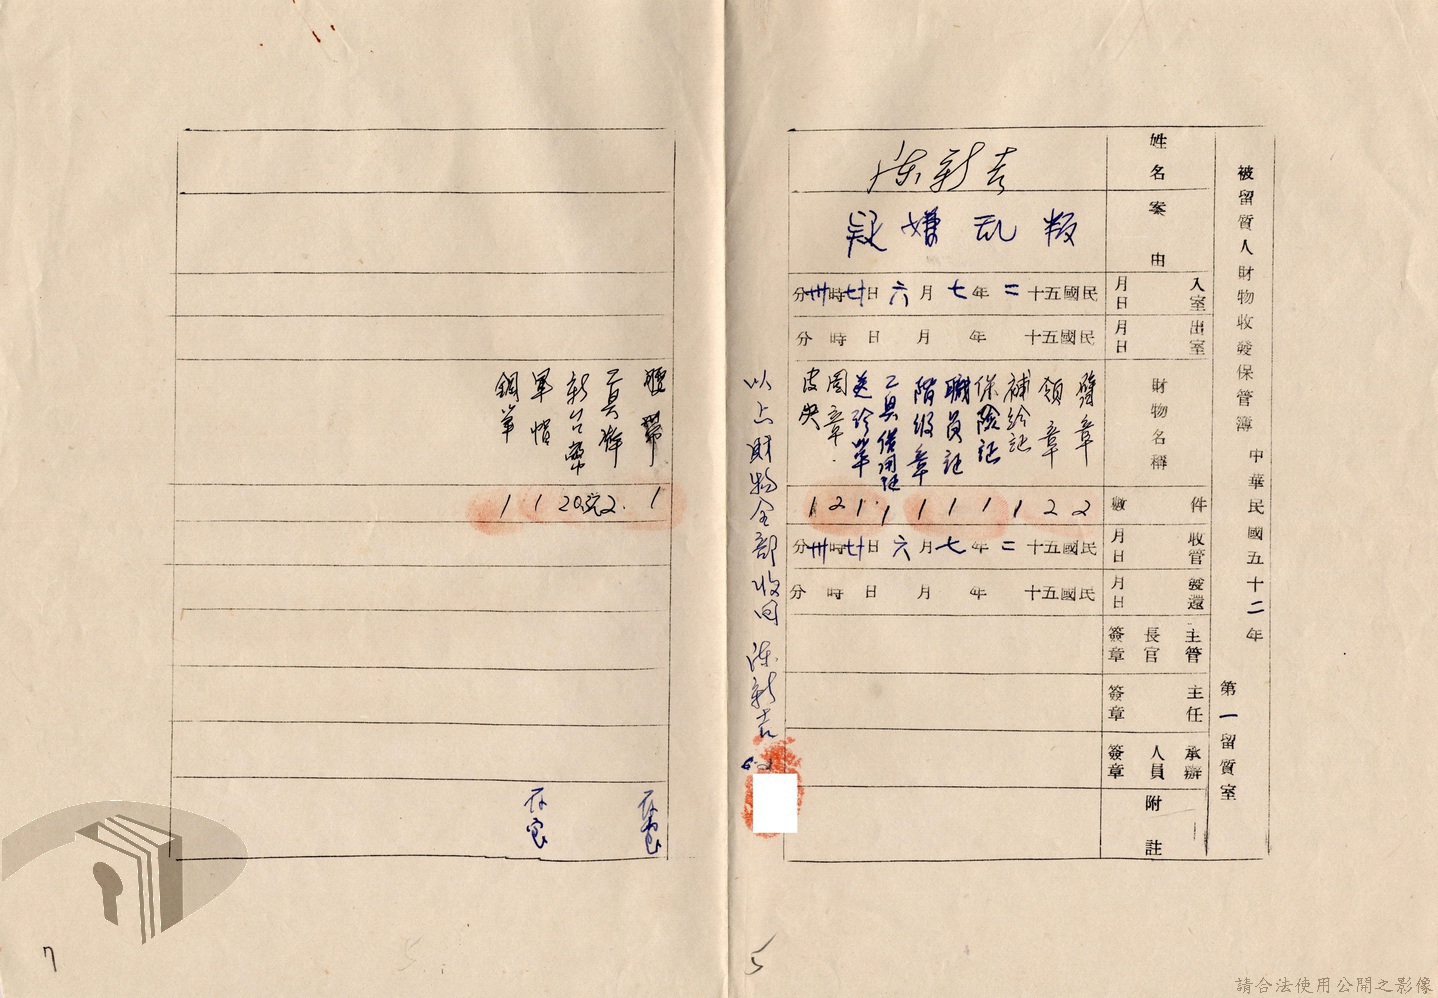 被留質人財物收發保管簿 中華民國五十二年
第一留質室
姓名 陳新吉
案由 叛乱嫌疑
入室月日 民國五十二年七月六日廿時卅分
出室月日 民國五十年月日時分
財物名稱 件數
臂章 2
領章 2
補給証 1
保險証 1
職員証 1
階級章 1
工具借用証 1
送診單 1
圖章 2
皮夾 1
收管月日 民國五十二年七月六日廿時卅分
發還月日 民國五十年月日時分
主管長官簽章
主任簽章
承辦人員簽章
附註
以上財物全部收回 陳新吉
5
腰帶 1
工具牌 2
新台幣 20元
軍帽 1
鋼筆 1
7
請合法使用公開之影像